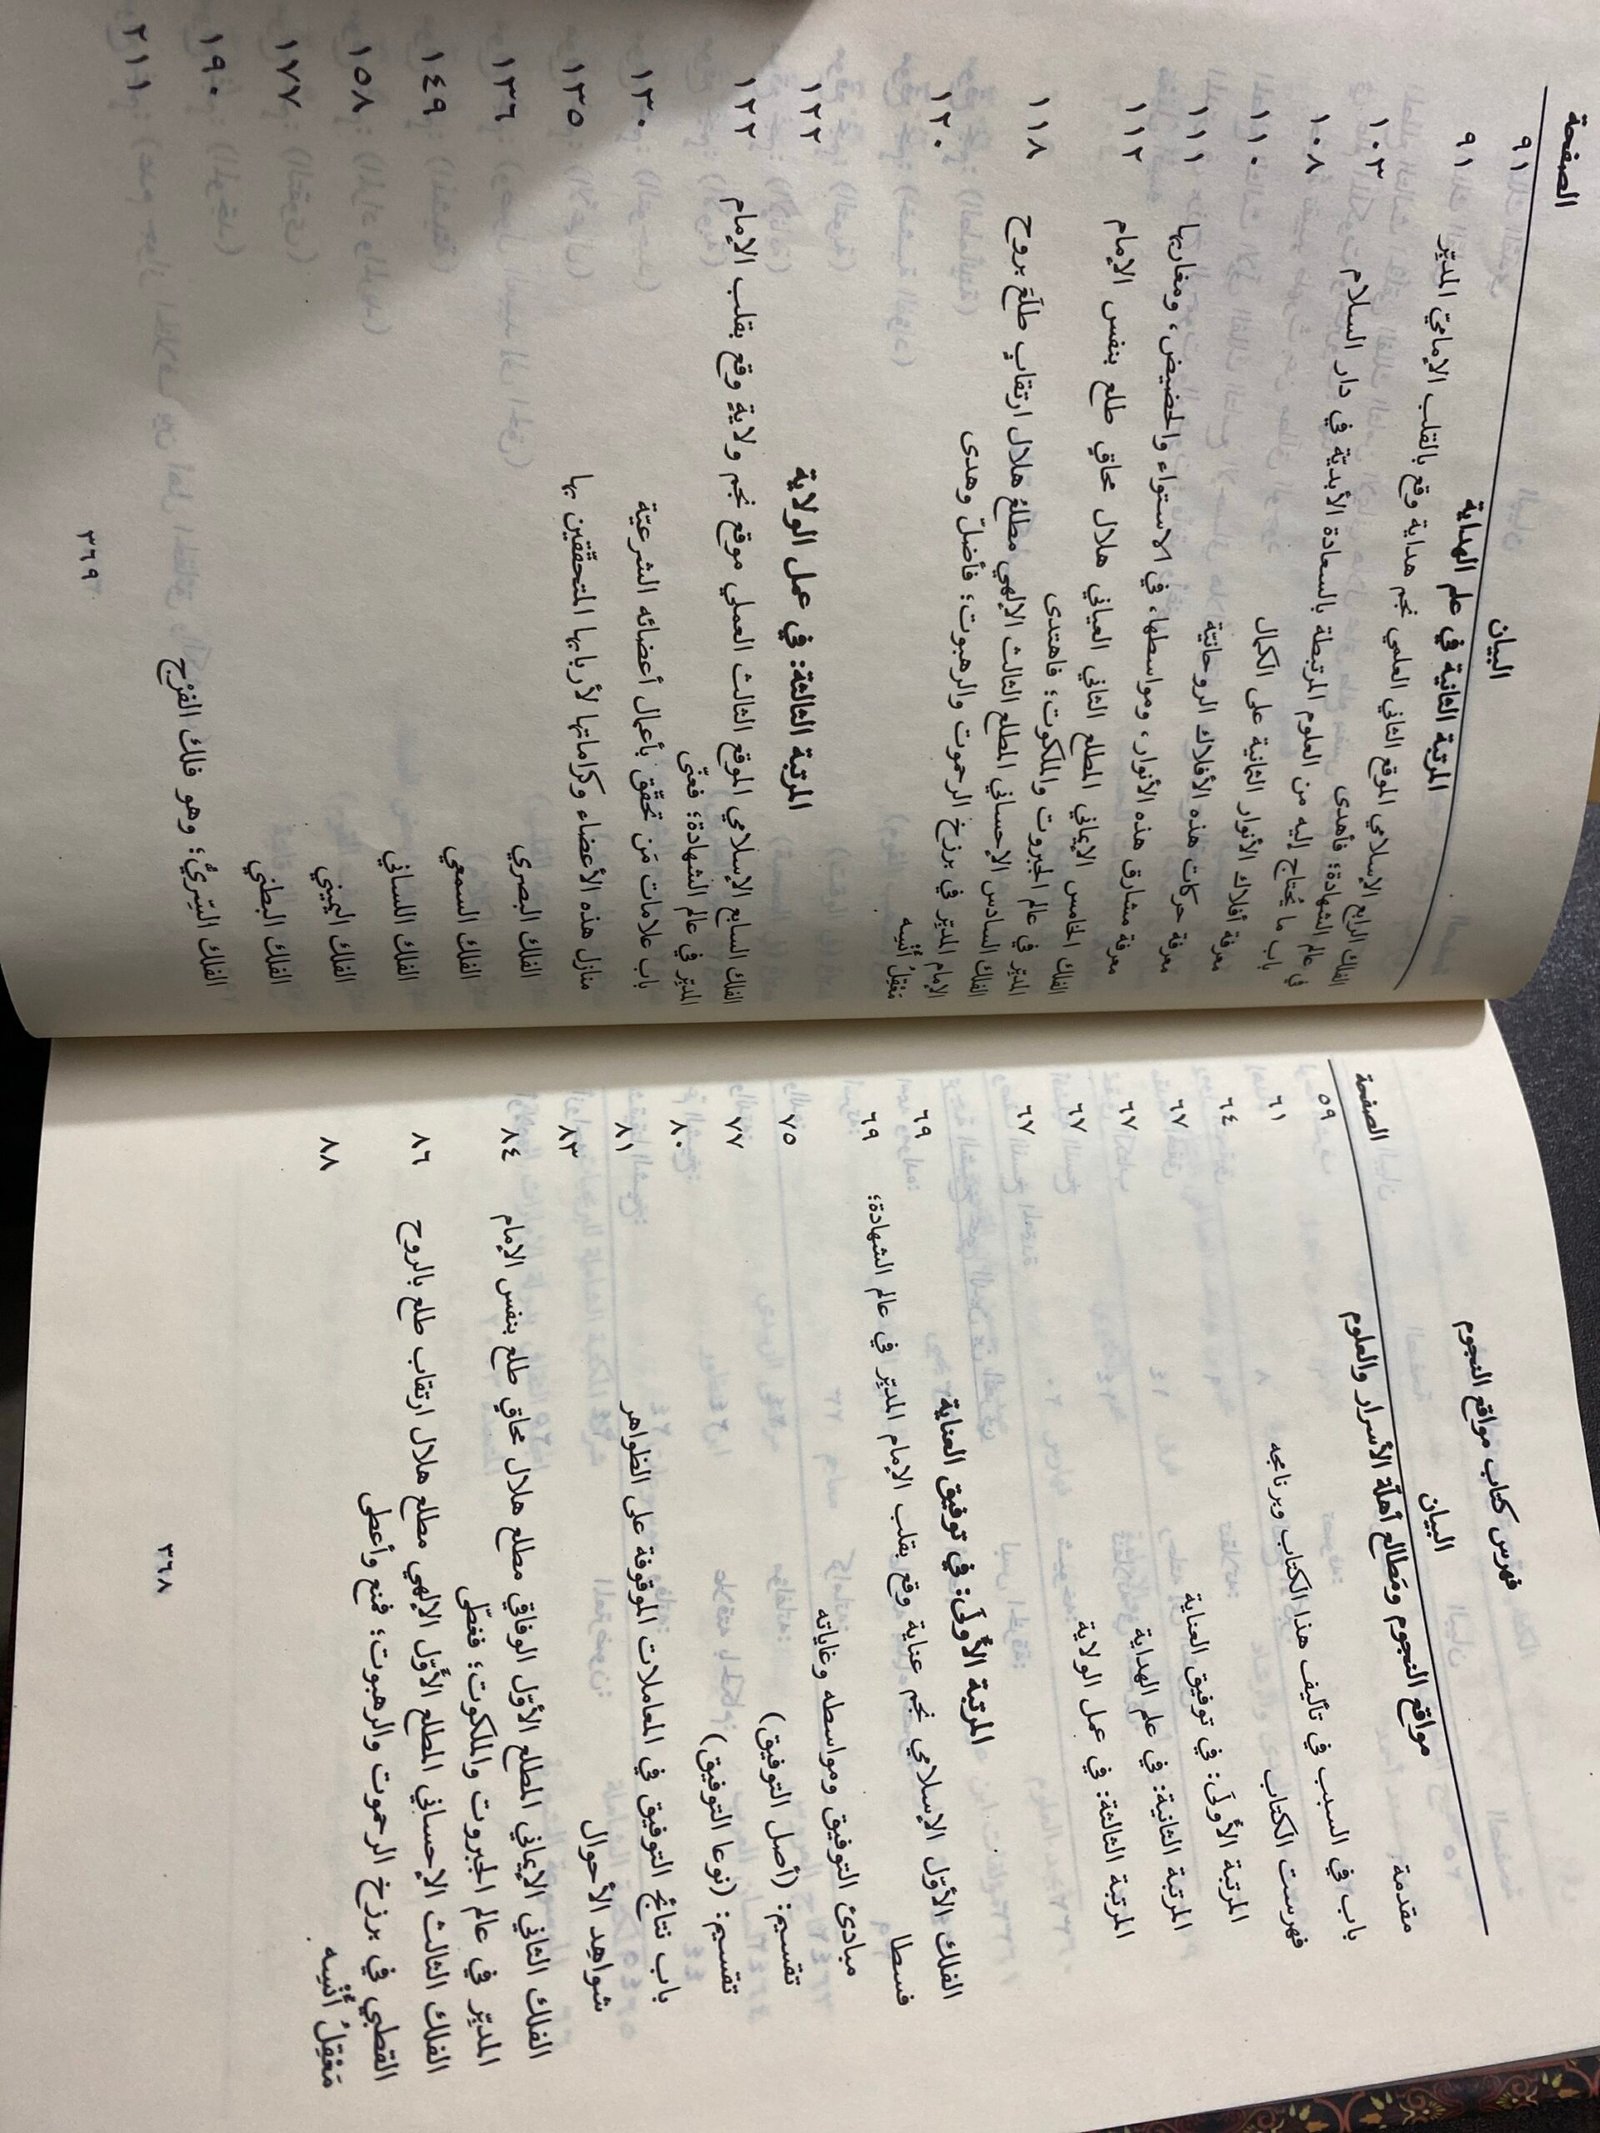 فهرس كتاب مواقع النجوم
البيان الصفحة
مواقع النجوم ومَطالع أهلّة الأسرار والعلوم
مقدمة ٥٩
باب في السبب في تأليف هذا الكتاب وبرنامجه ٦١
فهرست الكتاب ٦٤
المرتبة الأُولَى: في توفيق العناية ٦٧
المرتبة الثانية: في علم الهداية ٦٧
المرتبة الثالثة: في عمل الولاية ٦٧
المرتبة الأُولَى: في توفيق العناية ٦٧
الفلك الأوّل الإسلامي نجم عناية وقع بقلب الإمام المدبّر في عالم الشهادة؛ ٦٩
فسطا
مبادئ التوفيق ومواسطه وغاياته ٦٩
تقسيم: (أصل التوفيق) ٧٥
تقسيم: (نوعا التوفيق) ٧٧
باب نتائج التوفيق في المعاملات الموقوفة على الظواهر ٨٠
شواهد الأحوال ٨١
الفلك الثاني الإيماني المطلع الأوّل الوفاقي مطلع هلال محاقٍ طلع بنفس الإمام ٨٣
المدبّر في عالم الجبروت والملكوت؛ فغطّى ٨٤
الفلك الثالث الإحساني المطلع الأوّل الإلهي مطلع هلال ارتقاب طلع بالروح ٨٦
القطبي في برزخ الرحموت والرهبوت؛ فمنع وأعطى
مَعْقِلُ أُنْسِه ٨٨
٣٦٨
البيان الصفحة
المرتبة الثانية في علم الهداية ٩١
الفلك الرابع الإسلامي الموقع الثاني العلمي نجم هداية وقع بالقلب الإمامي المدبّر ٩١
في عالم الشهادة؛ فأهدى
باب ما يُحتاج إليه من العلوم المرتبطة بالسعادة الأبديّة في دار السلام ١٠٣
معرفة أفلاك الأنوار الثمانية على الكمال ١٠٨
معرفة حركات هذه الأفلاك الروحانيّة ١١٠
معرفة مشارق هذه الأنوار، ومواسطها، في الاستواء والحضيض، ومغاربها ١١١
الفلك الخامس الإيماني المطلع الثاني العياني هلال محاقٍ طلع بنفس الإمام ١١٢
المدبّر في عالم الجبروت والملكوت؛ فاهتدى
الفلك السادس الإحساني المطلع الثالث الإلهي مطلعُ هلال ارتقابٍ طلَعَ بروح ١١٨
الإمام المدبّر في برزخ الرحموت والرهبوت؛ فأضلّ وهدى
مَعْقِلُ أُنْسِه ١٢٠
المرتبة الثالثة: في عمل الولاية ١٢٢
الفلك السابع الإسلامي الموقع الثالث العملي موقع نجم ولاية وقع بقلب الإمام ١٢٢
المدبّر في عالم الشهادة؛ فعنّى
باب علامات مَن تحقّق بأعمال أعضائه الشرعيّة ١٣٠
منازل هذه الأعضاء وكراماتها لأربابها المتحقّقين بها ١٣٥
الفلك البصري ١٣٦
الفلك السمعي ١٤٩
الفلك اللساني ١٥٨
الفلك اليميني ١٧٧
الفلك البطني ١٩٠
الفلك السّرِيُّ؛ وهو فلك الفَرْج ٢١١
٣٦٩